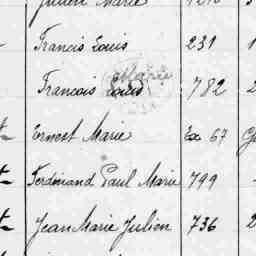 Julien Marie
Francis Louis 231 1
Marie
Francois Louis 782 2
Ernest Marie Ex 67
Ferdinand Paul Marie 799
Jean Marie Julien 736 2